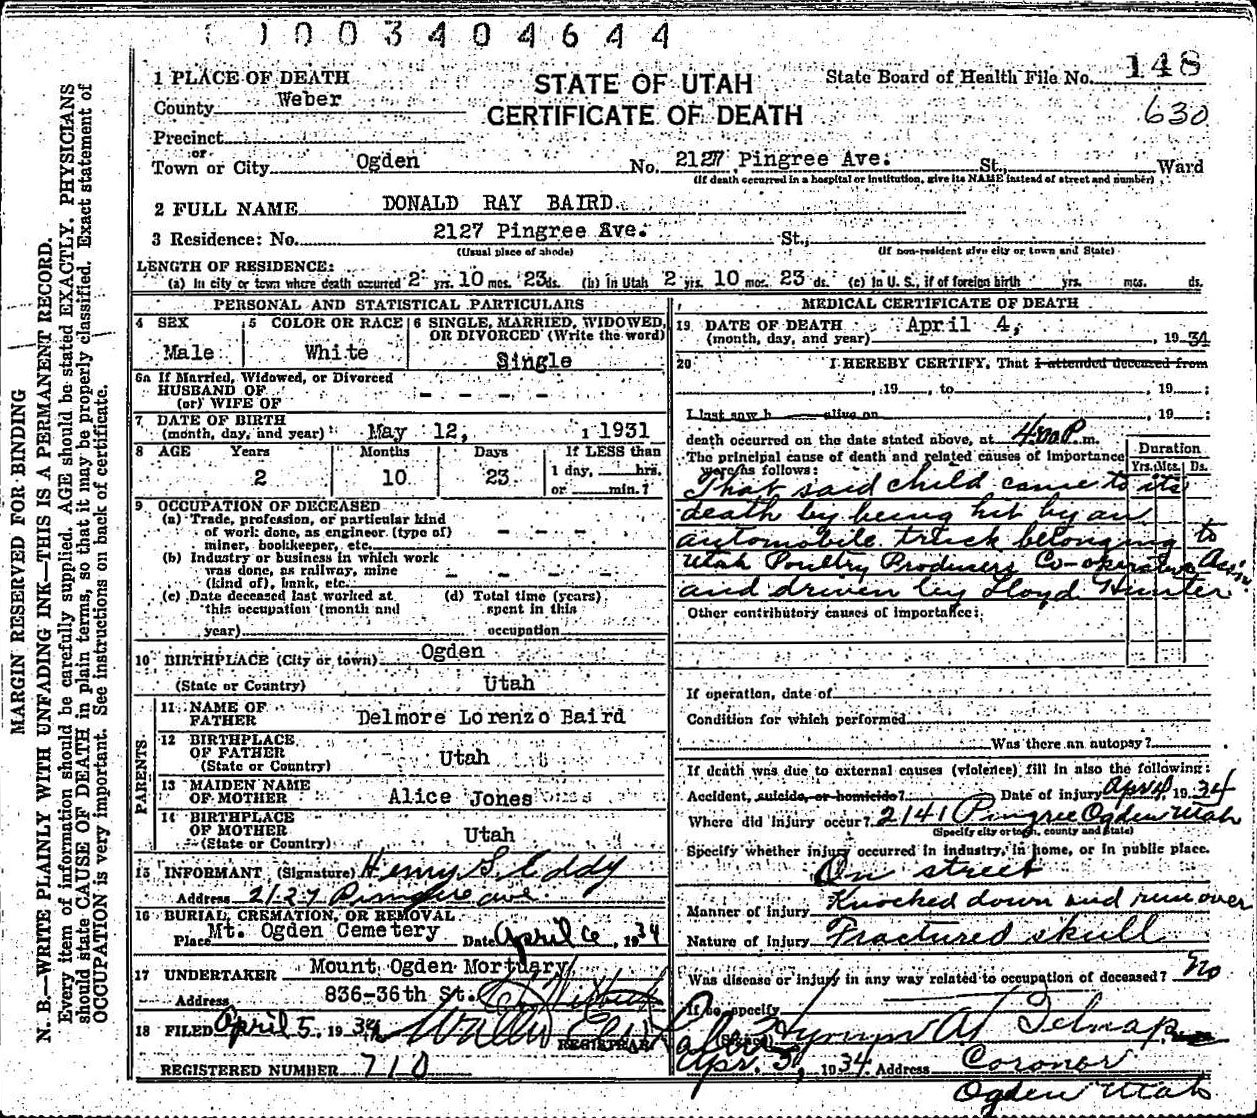 1003404644
1 PLACE OF DEATH
STATE OF UTAH
CERTIFICATE OF DEATH
State Board of Health File No. 148
630
County Weber
Precinct
or
Town or City Ogden No. 2127 Pingree Ave. St., Ward
(If death occurred in a hospital or institution, give its NAME instead of street and number)
2 FULL NAME DONALD RAY BAIRD
3 Residence: No. 2127 Pingree Ave. St.,
(Usual place of abode) (If non-resident give city or town and State)
LENGTH OF RESIDENCE:
(a) In city or town where death occurred 2 yrs. 10 mos. 23 ds. (b) In Utah 2 yrs. 10 mos. 23 ds. (c) In U. S., if of foreign birth yrs. mos. ds.
PERSONAL AND STATISTICAL PARTICULARS
4 SEX
Male
5 COLOR OR RACE
White
6 SINGLE, MARRIED, WIDOWED, OR DIVORCED (Write the word)
Single
6a If Married, Widowed, or Divorced
HUSBAND OF
(or) WIFE OF - - - -
7 DATE OF BIRTH
(month, day, and year) May 12, 1931
8 AGE Years Months Days If LESS than
2 10 23 1 day, hrs.
or min.?
9 OCCUPATION OF DECEASED
(a) Trade, profession, or particular kind
of work done, as engineer (type of)
miner, bookkeeper, etc. - - -
(b) Industry or business in which work
was done, as railway, mine
(kind of), bank, etc. - - - -
(c) Date deceased last worked at (d) Total time (years)
this occupation (month and spent in this
year) occupation
10 BIRTHPLACE (City or town) Ogden
(State or Country) Utah
PARENTS
11 NAME OF
FATHER Delmore Lorenzo Baird
12 BIRTHPLACE
OF FATHER Utah
(State or Country)
13 MAIDEN NAME
OF MOTHER Alice Jones
14 BIRTHPLACE
OF MOTHER Utah
(State or Country)
15 INFORMANT (Signature) Henry S. Eddy
Address 2127 Pingree ave
16 BURIAL, CREMATION, OR REMOVAL
Place Mt. Ogden Cemetery Date April 6, 1934
17 UNDERTAKER Mount Ogden Mortuary
Address 836-36th St.
18 FILED April 5, 1934
REGISTRAR
REGISTERED NUMBER 710
MEDICAL CERTIFICATE OF DEATH
19 DATE OF DEATH April 4,
(month, day, and year) , 1934
20 I HEREBY CERTIFY, That I attended deceased from
, 19 , to , 19 ;
I last saw h alive on , 19 ;
death occurred on the date stated above, at 4:00 P. m.
The principal cause of death and related causes of importance
were as follows:
Duration
Yrs. Mos. Ds.
That said child came to its
death by being hit by an
automobile truck belonging to
Utah Poultry Producers Co-operative Ass'n.
and driven by Lloyd Hunter
Other contributory causes of importance:
If operation, date of
Condition for which performed
Was there an autopsy?
If death was due to external causes (violence) fill in also the following:
Accident, suicide, or homicide? Date of injury Apr 4, 1934
Where did injury occur? 2141 Pingree Ogden Utah
(Specify city or town, county and state)
Specify whether injury occurred in industry, in home, or in public place.
On street
Manner of injury Knocked down and run over
Nature of injury Fractured skull
Was disease or injury in any way related to occupation of deceased? No
If so, specify
(Signed) Hyrum A. Belnap
Apr. 5, 1934 Address Coroner
Ogden Utah
MARGIN RESERVED FOR BINDING
N. B.—WRITE PLAINLY WITH UNFADING INK—THIS IS A PERMANENT RECORD.
Every item of information should be carefully supplied. AGE should be stated EXACTLY. PHYSICIANS
should state CAUSE OF DEATH in plain terms, so that it may be properly classified. Exact statement of
OCCUPATION is very important. See instructions on back of certificate.